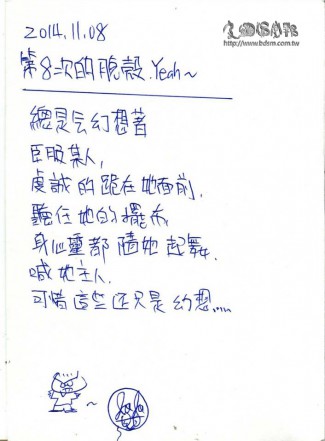 2014.11.08
http://www.bdsm.com.tw
第8次的脫殼.Yeah~
總是会幻想著
臣服某人,
虔誠的跪在她面前,
聽任她的擺布,
身心靈都隨她起舞.
喊她主人.
可惜這些还只是幻想....
~